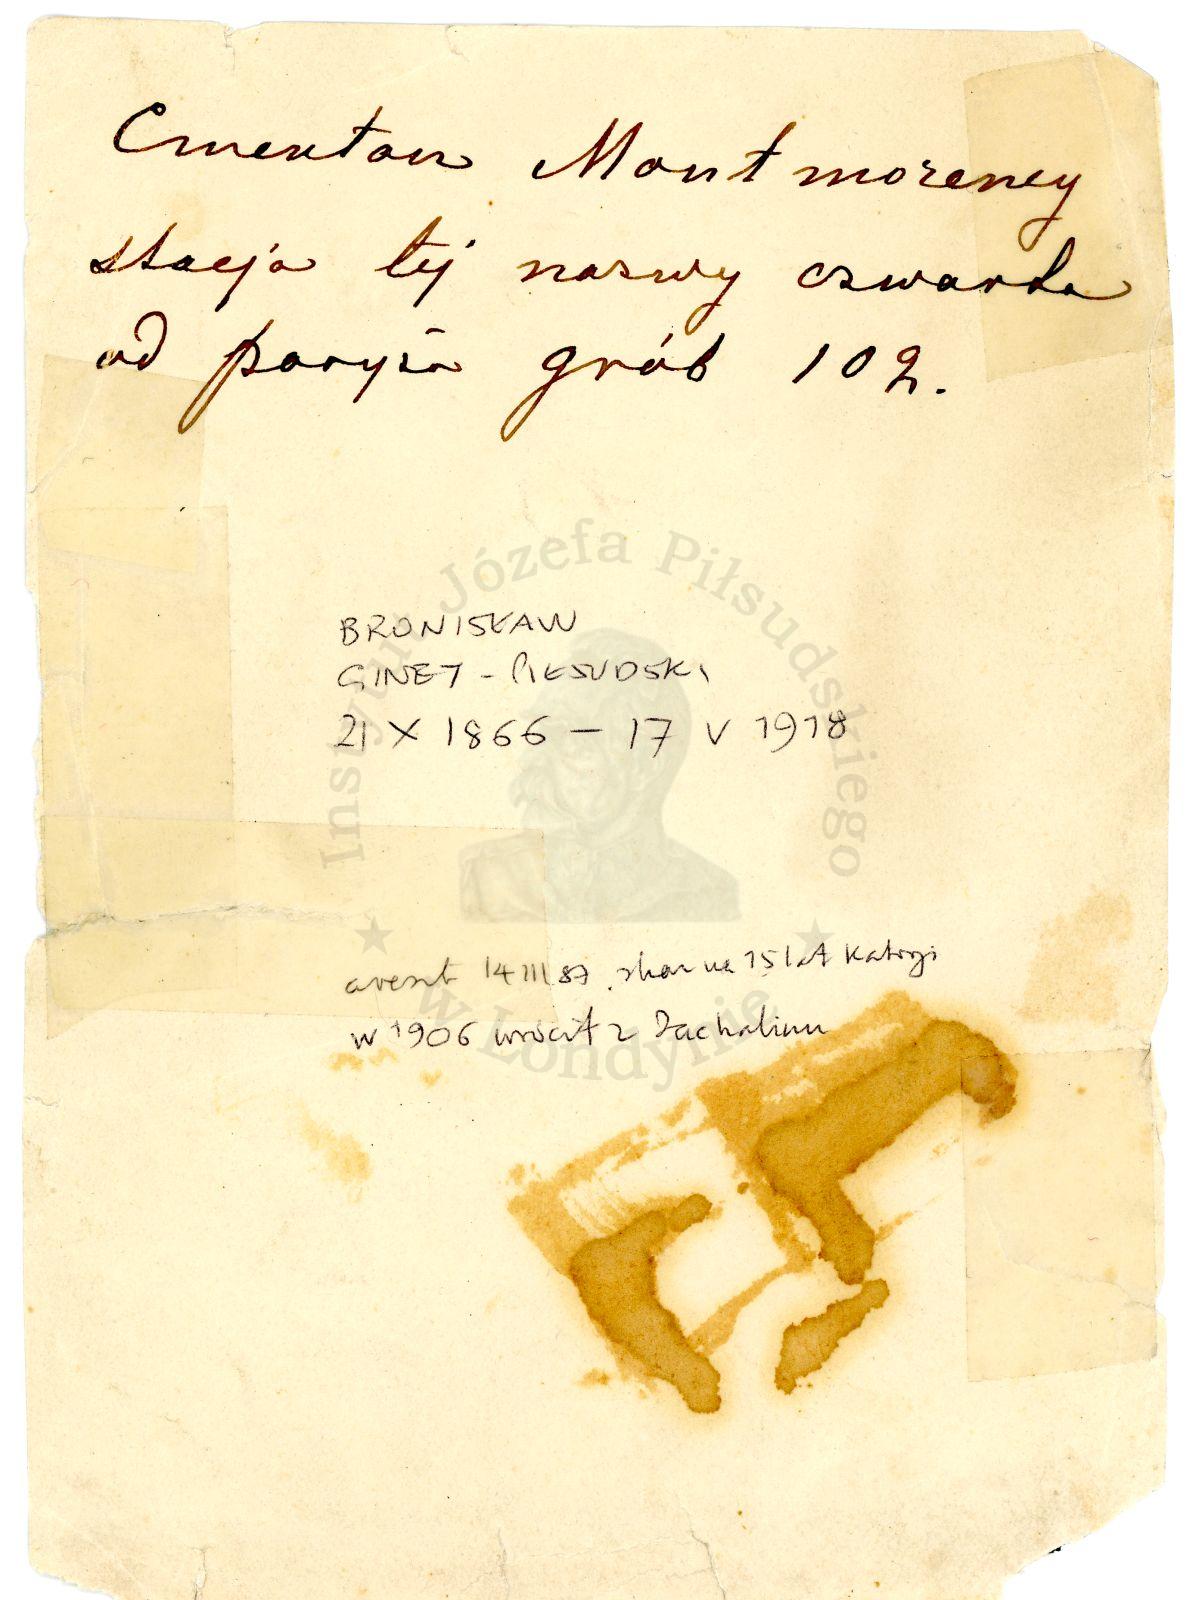 Cmentarz Montmoreney
stacja tej nazwy czwarta
od paryża grób 102.
BRONISŁAW
GINET - PIŁSUDSKI
21 X 1866 - 17 V 1918
areszt 14 III 87 skaz na 15 lat Katorgi
w 1906 wrócił z Sachalinu
Instytut Józefa Piłsudskiego
w Londynie